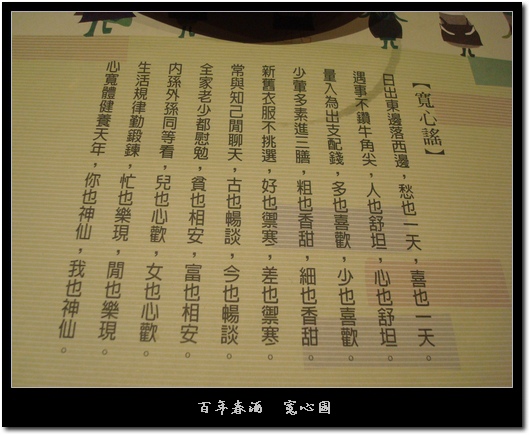 【寬心謠】
日出東邊落西邊，愁也一天，喜也一天。
遇事不鑽牛角尖，人也舒坦，心也舒坦。
量入為出支配錢，多也喜歡，少也喜歡。
少葷多素進三膳，粗也香甜，細也香甜。
新舊衣服不挑選，好也禦寒，差也禦寒。
常與知己閒聊天，古也暢談，今也暢談。
全家老少都慰勉，貧也相安，富也相安。
內孫外孫同等看，兒也心歡，女也心歡。
生活規律勤鍛鍊，忙也樂現，閒也樂現。
心寬體健養天年，你也神仙，我也神仙。
百年春酒　寬心園